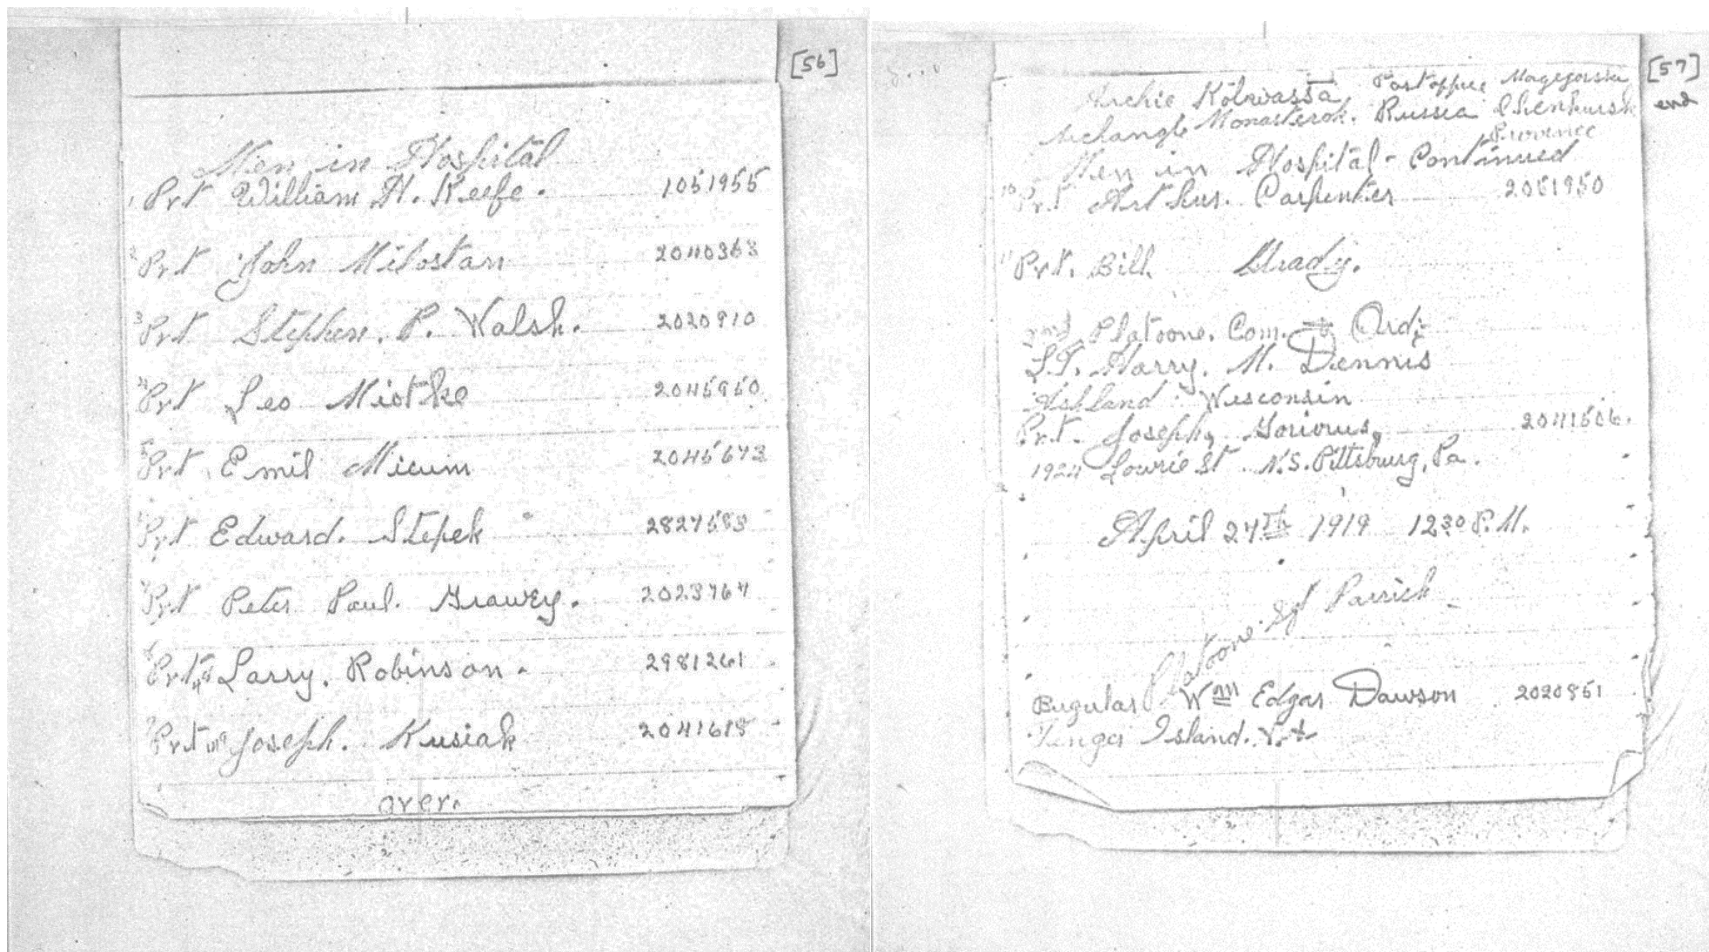 [56]
Men in Hospital
1 Pvt William H. Keefe. 1051955
2 Pvt John Milostan 2040363
3 Pvt Stephen. P. Walsh. 2020910
4 Pvt Leo Miotke 2045950
5 Pvt Emil Micum 2045673
Pvt Edward. Stepek 2827583
Pvt Peter Paul. Grawey. 2023767
8 Pvt Larry. Robinson. 2981261
Pvt Joseph. Kusiak 2041618
over.
[57]
end
Archie Post office
Russia
Province
Men in Hospital - Continued
10 Pvt Arthur. Carpenter 2051950
11 Pvt. Bill Grady.
2nd Platoone. Com.
LT. Harry. M. Dennis
Ashland Wisconsin
Pvt. Joseph 2041506.
1924 Lowrie St N.S. Pittsburg, Pa.
April 27th 1919 1230 P.M.
Platoone Sgt
Bugular Wm Edgar Dawson 2020851
Island.